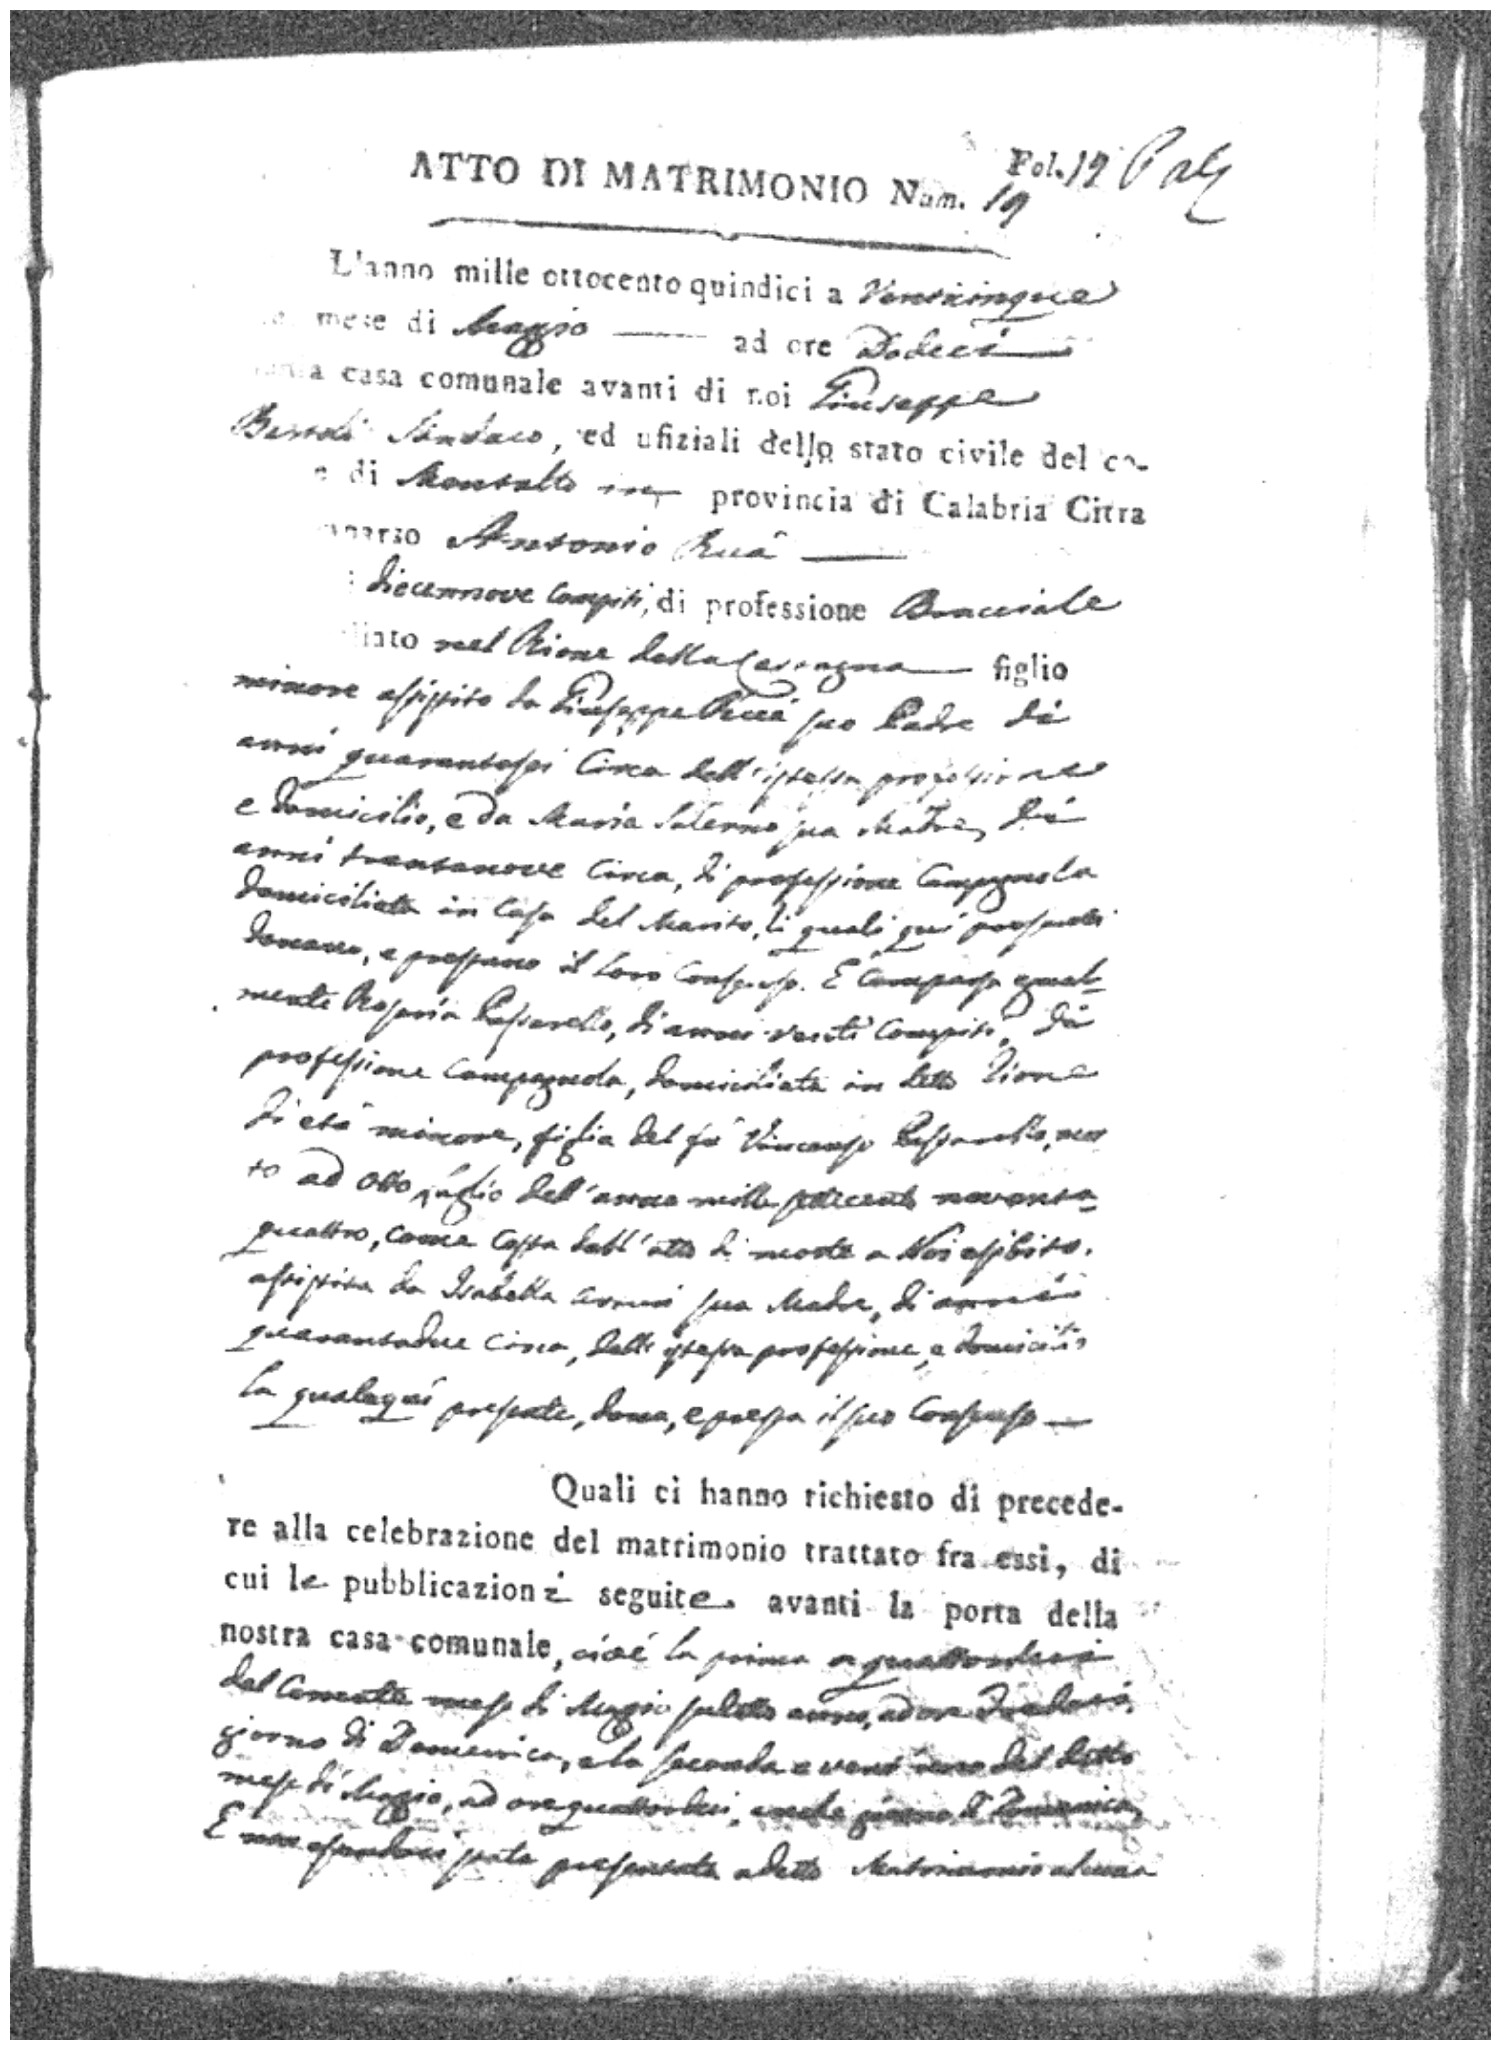 Fol. 19
ATTO DI MATRIMONIO Num. 19
L'anno mille ottocento quindici a Venticinque
mese di Maggio ad ore Dodeci
casa comunale avanti di noi Giuseppe
Sindaco, ed ufiziali dello stato civile del co-
e di Montalto in provincia di Calabria Citra
Antonio Ruà
diecennove compiti, di professione Bracciale
nel Rione della figlio
minore assistito da Giuseppe Ruà suo Padre di
anni quarantasei Circa dell'istessa professione
e domicilio, e da Maria Salerno sua Madre, di
anni trentanove Circa, di professione Campagnola
domiciliata in Casa del Marito, li quali qui presenti
donano, e prestano il loro Consenso. E Comparsa egual-
mente Rosaria Passarello, di anni venti Compiti, di
professione Campagnola, domiciliata in detto Rione
di età minore, figlia del fù Vincenzo Passarello, mor
to ad otto luglio dell'anno mille settecento novanta-
quattro, come Costa dall'atto di morte a Noi esibito.
assistita da Isabella sua Madre, di anni
quarantadue Circa, dell'istessa professione, e domicilio
la quale qui presente, dona, e presta il suo Consenso
Quali ci hanno richiesto di precede-
re alla celebrazione del matrimonio trattato fra essi, di
cui le pubblicazioni seguite avanti la porta della
nostra casa comunale, cioè la prima a quattordeci
del Corrente mese di Maggio sudetto anno, ad ore
giorno di Domenica, e la seconda a vent'uno del detto
mese di Maggio, ad ore quattordeci, anche giorno di Domenica,
E non essendoci stata presentata a detto Matrimonio alcuna